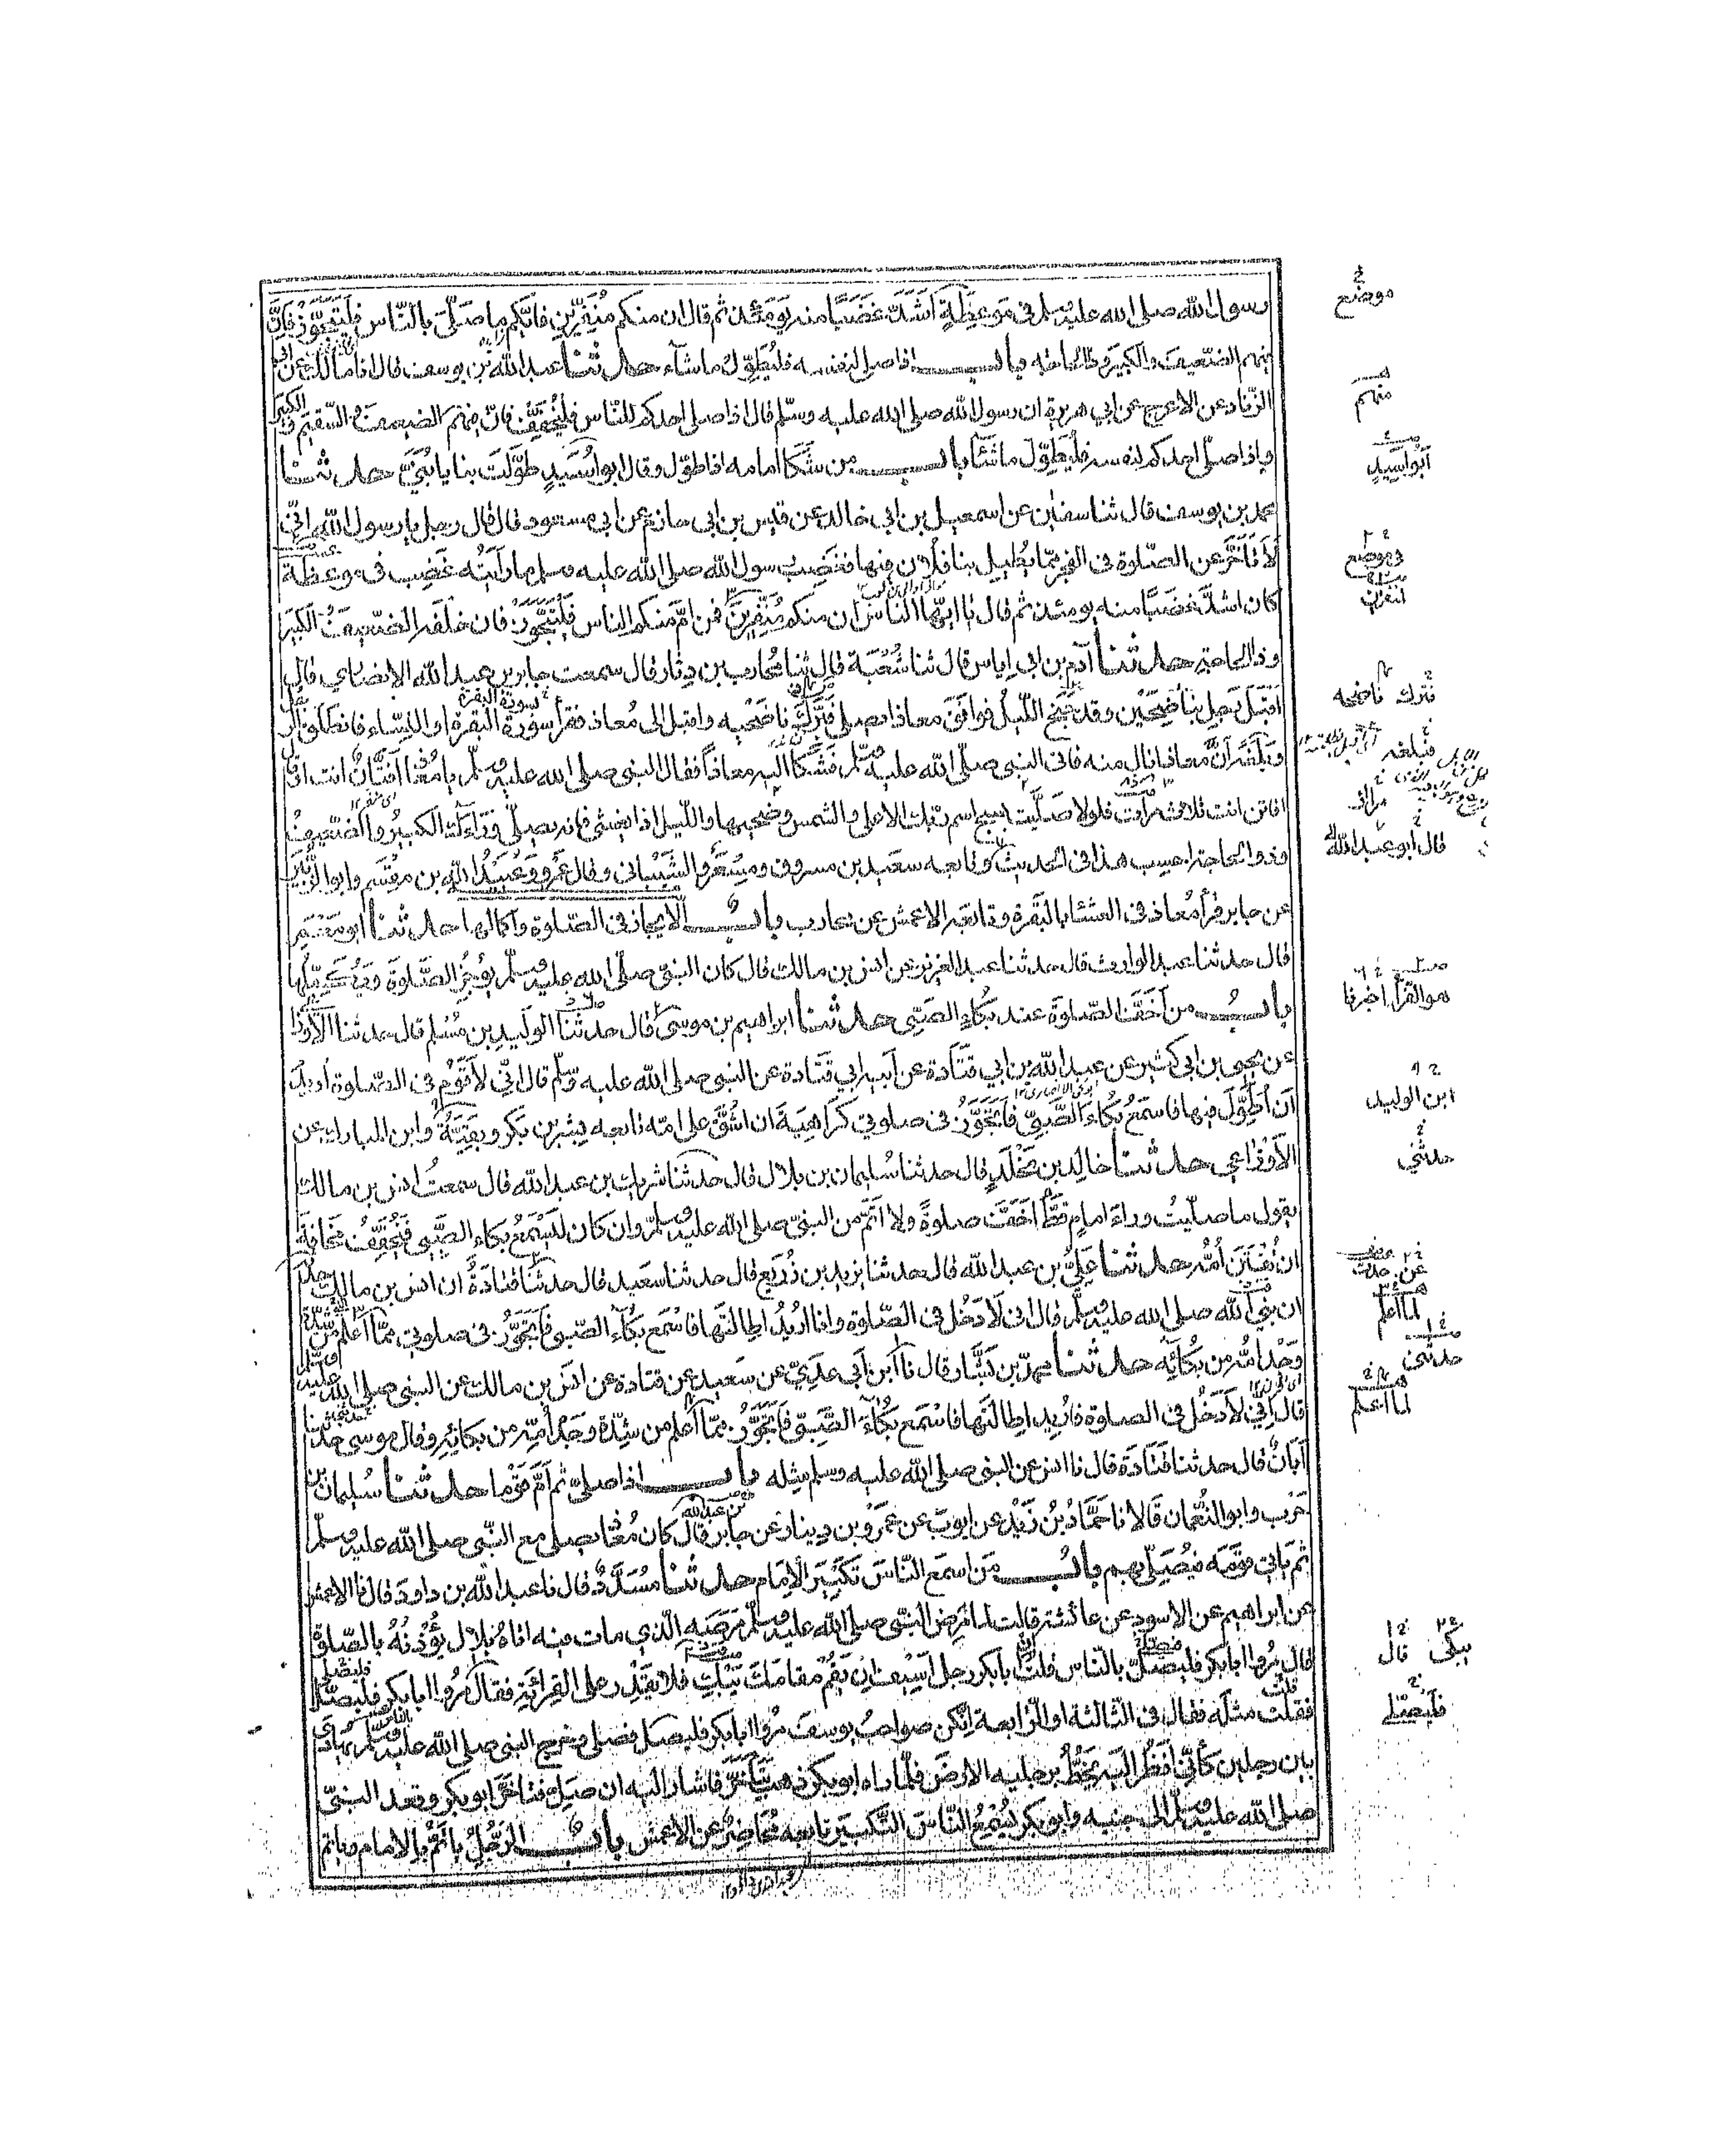 رسول الله صلى الله عليه وسلم فى مَوعِظَةٍ اَشَدَّ غَضَبًا منه يَومَئذٍ ثم قال ان منكم مُنَفِّرِيْن فايّكم ما صَلّى بالنّاس فليَتَجَوَّزْ فَاِنَّ
فيهم الضّعيفَ والكبيرَ وذا الحاجة بابـــــ اذا صلى لنفسه فليُطَوِّلْ ماشاء حدثنا عبد الله بن يوسف قال انا مالك عن ابى
الزّناد عن الاعرج عن ابي هريرة ان رسول الله صلى الله عليه وسلّم قال اذا صلى احدكم للنّاس فليُخَفِّفْ فانّ فيهم الضعيفَ والسّقيم والكبيرَ
واذا صلّى احدكم لنفسه فليُطَوِّل ماشَاءَ بابـــــ من شَكَا امامه اذا طوّل وقال ابو اُسَيدٍ طَوَّلتَ بنا يا بُنَيَّ حدثنا
محمد بن يوسف قال ثنا سفيٰن عن اسمعيل بن ابي خالد عن قيس بن ابي حازم عن ابي مسعود قال قال رجل يا رسول الله انّي
لَاَتَاَخَّرُ عن الصّلوة فى الفجر ممّا يُطيل بنا فلان فيها فغَضِب رسول الله صلى الله عليه وسلم ما رأيتُه غَضِب فى موعظة
كان اشدَّ غضبًا منه يومئذ ثم قال يا ايّها الناس ان منكم مُنَفِّرِيْنَ فمن اَمَّ منكم الناس فَلْيَتَجَوَّزْ فان خلفه الضعيفَ والكبيرَ
وذا الحاجة حدثنا آدم بن ابي اياس قال ثنا شُعْبَة قال ثنا مُحارب بن دِثار قال سمعت جابر بن عبد الله الانصاري قال
اَقْبَلَ رجل بناضِحَيْن وقد جَنَح الليلُ فوافَقَ معاذا يصلى فَبَرَّكَ ناضحَيه واقبل الى مُعاذ فقرأ سورة البقرة او النّساء فانطلق الرّجل
وبَلَغَه اَنَّ معاذا نال منه فاتى النبى صلّى الله عليه وسلّم فَشَكَا اليه معاذاً فقال النبى صلى الله عليه وسلّم يا مُعاذ اَفَتَّانٌ انت او قال
افاتن انت ثلاث مرات فلولا صَلَّيت بسبح اسم ربك الاعلى والشمس وضحيها والليل اذا يغشى فانه يصلّى وَرَاءَكَ الكبيرُ والضّعيفُ
وذو الحاجة احسب هذا فى الحديث وتابعه سعيد بن مسروق ومِسْعَرٌ والشَّيْبانى وقال عَمْرٌو وعُبَيْدُ الله بن مِقْسَم وابو الزُّبَيْر
عن جابر قرأ مُعاذ فى العشاء بالبَقَرة وتابَعَه الاعمش عن محارب بابُـــــ الايجاز فى الصّلوة واكمالها حدثنا ابو مَعْمَر
قال حدثنا عبد الوارث قال حدثنا عبد العزيز عن انس بن مالك قال كان النبيّ صلّى الله عليه وسلّم يُوْجِزُ الصَّلٰوةَ ويُكَمِّلُها
بابُـــــ من اَخَفَّ الصّلوةَ عند بُكاءِ الصَّبِي حدثنا ابراهيم بن موسى قال حدثنا الوليد بن مُسْلم قال حدثنا الاَوْزاعى
عن يحيى بن ابي كثير عن عبد الله بن ابي قَتَادَة عن اَبيه ابي قَتَادة عن النبى صلى الله عليه وسّلم قال انّي لَاَقُوْم فى الصّلوة اُريدُ
اَن اُطَوِّلَ فيها فاسمَعُ بُكاءَ الصَّبِيّ فاَتَجَوَّزُ فى صلوتي كَرَاهِيَةَ ان اَشُقَّ على امّه تابعه بِشْر بن بَكر وبَقِيَّةُ وابن المبارك عن
الاَوْزاعي حدثنا خالد بن مَخْلَدٍ قال حدثنا سُليمان بن بلال قال حدثنا شريك بن عبد الله قال سمعتُ انس بن مالك
يقول ما صليتُ وراء امام قَطُّ اَخَفَّ صلوةً ولا اتمَّ من النبيّ صلى الله عليه وسلّم وان كان لَيَسْمَعُ بكاء الصَّبِي فَيُخَفِّفُ مَخَافَةَ
ان تُفْتَنَ اُمُّه حدثنا عَلِيُّ بن عبد الله قال حدثنا يزيد بن زُرَيع قال حدثنا سعيد قال حدثنا قتادةُ ان انس بن مالك حدثه
ان نبيّ الله صلى الله عليه وسلّم قال انى لَاَدْخُل فى الصّلوة وانا اُريْدُ اطالتَها فاَسْمَع بُكَاءَ الصّبى فاَتَجَوَّزُ فى صلوتي ممّا اَعلم من شدّة
وَجْدِ امّه من بكائِه حدثنا محمد بن بَشّار قال نا ابن اَبي عَدِيّ عن سَعيد عن قتادة عن انس بن مالك عن النبى صلى الله عليه وسلّم
قال اِنّي لَاَدْخُل فى الصلوة فاُريد اطالتَها فاَسْمَع بُكَاءَ الصَّبِيّ فاَتَجَوَّزُ ممّا اَعلم من شِدّة وَجْدِ اُمّه من بكائه وقال موسى حدثنا
اَبَانُ قال حدثنا قَتَادَة قال نا انس عن النبى صلى الله عليه وسلم مثله بابـــــ اذا صلىّ ثم اَمَّ قَوْما حدثنا سُليمان بن
حَرْب وابو النُّعمان قالا نا حَمَّادُ بْنُ زَيْد عن ايوبَ عن عَمْرو بن دينار عن جابر قال كان مُعاذ يصلى مع النّبى صلى الله عليه وسلّم
ثم يَاتي قَومَه فيُصَلّي بهم بابُـــــ مَن اسمع النّاسَ تكبيرَ الاِمَام حدثنا مُسَدَّدٌ قال نا عبد الله بن داودَ قال نا الاعمش
عن ابراهيم عن الاسود عن عائشة قالت لما مَرِض النّبى صلى الله عليه وسلّم مَرَضَه الّذي مات فيه اتاهُ بلال يُؤْذِنُهُ بالصّلوة
قال مُرُوا ابا بكر فليصلّ بالنّاس قلتُ ان ابا بكر رجل اَسِيْف اِن يَقُمْ مقامَكَ يَبْكِ فلا يَقْدِر على القِراءَة فقال مُرُوا ابا بكر فليصلّ
فقلت مثلَه فقال فى الثّالثة او الرّابعة انّكن صواحبُ يوسفَ مُرُوا ابا بكر فليصلّ فصلى وخرج النبى صلى الله عليه وسلّم يُهادَى
بين رجلين كأنّي اَنظُرُ اليه يَخُطُّ برجليه الارضَ فلمّا راه ابو بكر ذهب يتأخّر فاشار اليه ان صَلِّ فتاخَّر ابو بكر وقعد النبيّ
صلى الله عليه وسلّم الى جنبه وابو بكر يُسْمِعُ النّاسَ التّكبيرَ تابعه مُحَاضِرٌ عن الاعمش بابُـــــ الرّجُلُ يأتَمُّ بالامام وياتم
موضع
منهم
اَبو اَسِيدٍ
فى موضع
فترك ناضحه
فبلغه
قال ابو عبد الله
هو الفرّاء اخبرنا
ابن الوليد
حدثني
عن
لما اعلم
حدثنى
لما اعلم
يبكى قال
فليصلى